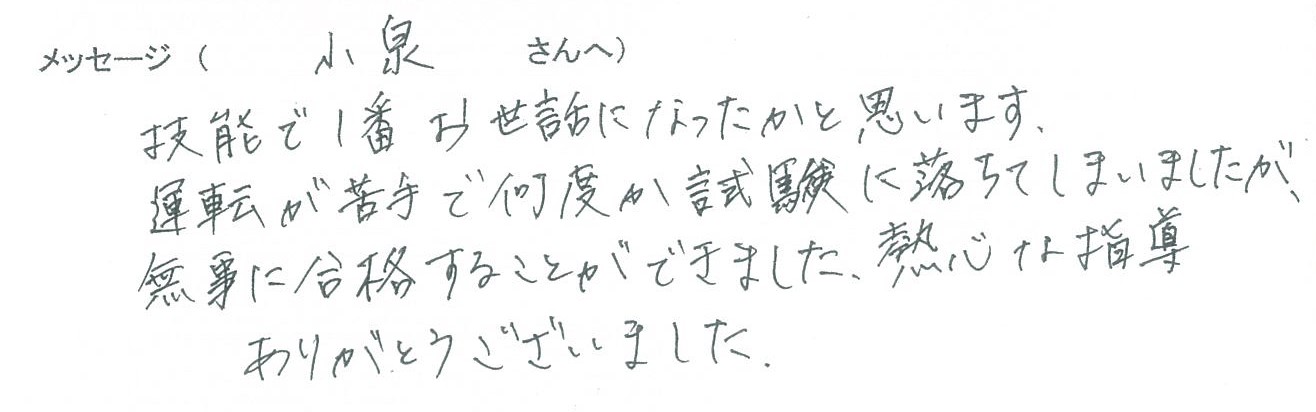 メッセージ（ 小泉 さんへ）
技能で1番お世話になったかと思います.
運転が苦手で何度か試験に落ちてしまいましたが、
無事に合格することができました.熱心な指導
ありがとうございました.